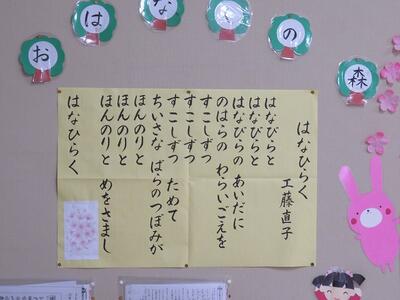 おはなしの森
はなひらく
工藤直子
はなびらと
はなびらと
はなびらの あいだに
のはらの わらいごえを
すこしずつ
すこしずつ
すこしずつ ためて
ちいさな ばらのつぼみが
ほんのりと
ほんのりと
ほんのりと めをさまし
はなひらく